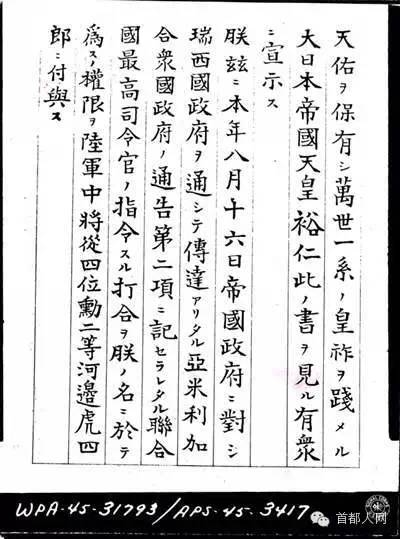 天佑ヲ保有シ萬世一系ノ皇祚ヲ踐メル
大日本帝國天皇裕仁此ノ書ヲ見ル有衆
ニ宣示ス
朕玆ニ本年八月十六日帝國政府ニ對シ
瑞西國政府ヲ通シテ傳達アリタル亞米利加
合衆國政府ノ通告第二項ニ記セラレタル聯合
國最高司令官ノ指令スル打合ヲ朕ノ名ニ於テ
爲スノ權限ヲ陸軍中將從四位勳二等河邉虎四
郎ニ付與ス
WPA-45-31793/APS-45-3417
首都人网